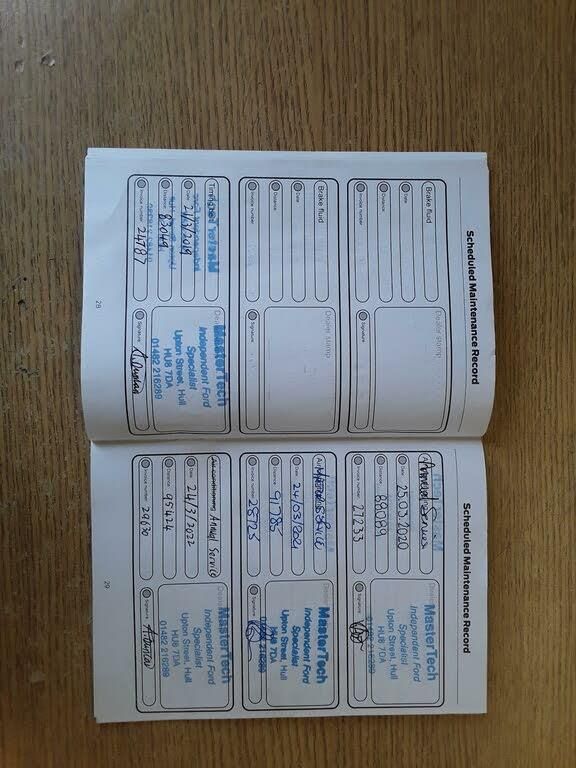 Scheduled Maintenance Record
Brake fluid
Date
Distance
Invoice number
Dealer stamp
Signature
Brake fluid
Date
Distance
Invoice number
Dealer stamp
Signature
Date
21/3/2019
Distance
83049
Invoice number
24787
MasterTech
Independent Ford
Specialist
Upton Street, Hull
HU8 7DA
01482 216289
Signature
28
Scheduled Maintenance Record
Annual Service
Date
25.03.2020
Distance
88089
Invoice number
27233
MasterTech
Independent Ford
Specialist
Upton Street, Hull
HU8 7DA
01482 216289
Signature
Date
24/03/2021
Distance
91785
Invoice number
28125
MasterTech
Independent Ford
Specialist
Upton Street, Hull
HU8 7DA
01482 216289
Signature
Annual Service
Date
24/3/2022
Distance
95424
Invoice number
29630
MasterTech
Independent Ford
Specialist
Upton Street, Hull
HU8 7DA
01482 216289
Signature
29